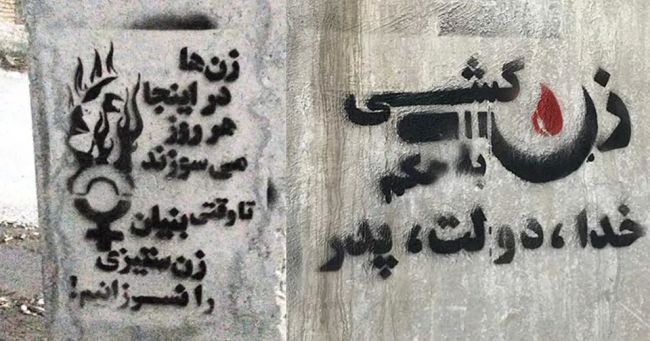 زن‌ها
در اینجا
هر روز
می‌سوزند
تا وقتی بنیان
زن ستیزی
را نسوزانیم!
زن کشی
به حکم
خدا، دولت، پدر